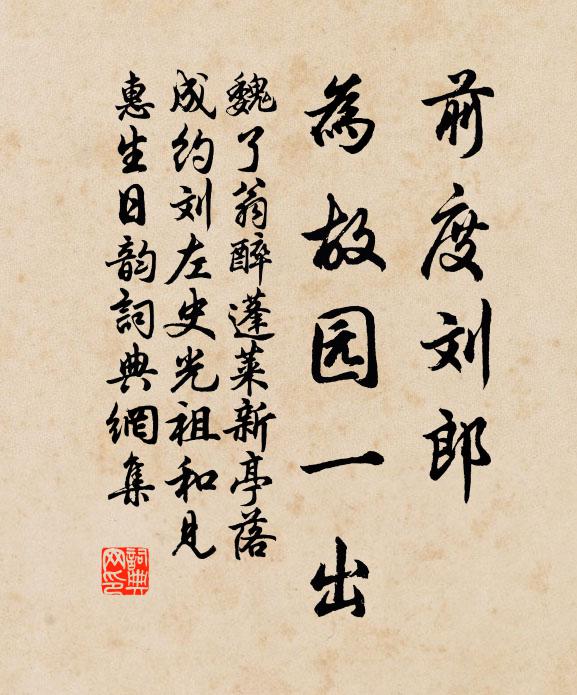 前度刘郎
為故园一出
魏了翁醉蓬莱新亭落
成约刘左史光祖和见
惠生日韵詞典網集
詞典网印